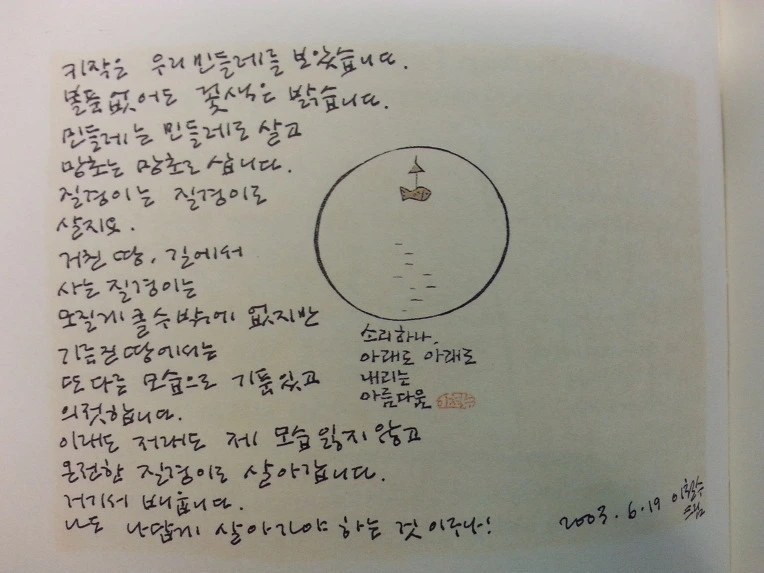 키작은 우리 민들레를 보았습니다.
볼품없어도 꽃색은 밝습니다.
민들레는 민들레로 살고
망초는 망초로 삽니다.
질경이는 질경이로
살지요.
거친 땅, 길에서
사는 질경이는
모질게 클 수 밖에 없지만
기름진 땅에서는
또 다른 모습으로 기품있고
의젓합니다.
이래도 저래도 제 모습 잃지 않고
온전한 질경이로 살아갑니다.
거기서 배웁니다.
나도 나답게 살아가야 하는 것 이구나!
소리하나,
아래로 아래로
내리는
아름다움
2003. 6. 19 이철수
드림